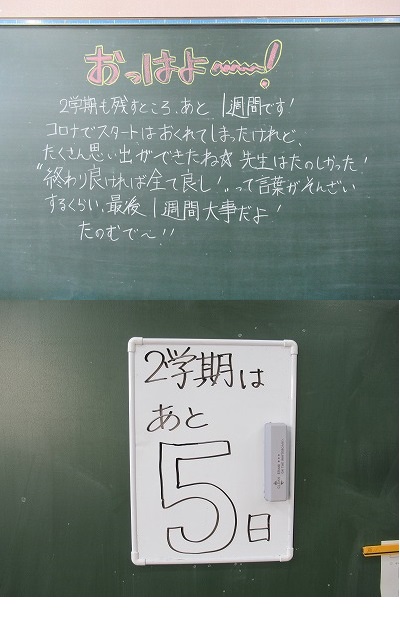 おっはよ〜〜!
2学期も残すところ、あと1週間です!
コロナでスタートはおくれてしまったけれど、
たくさん思い出ができたね☆ 先生はたのしかった!
"終わり良ければ全て良し!"って言葉がそんざい
するくらい、最後1週間大事だよ!
たのむで〜!!
2学期は
あと
5日